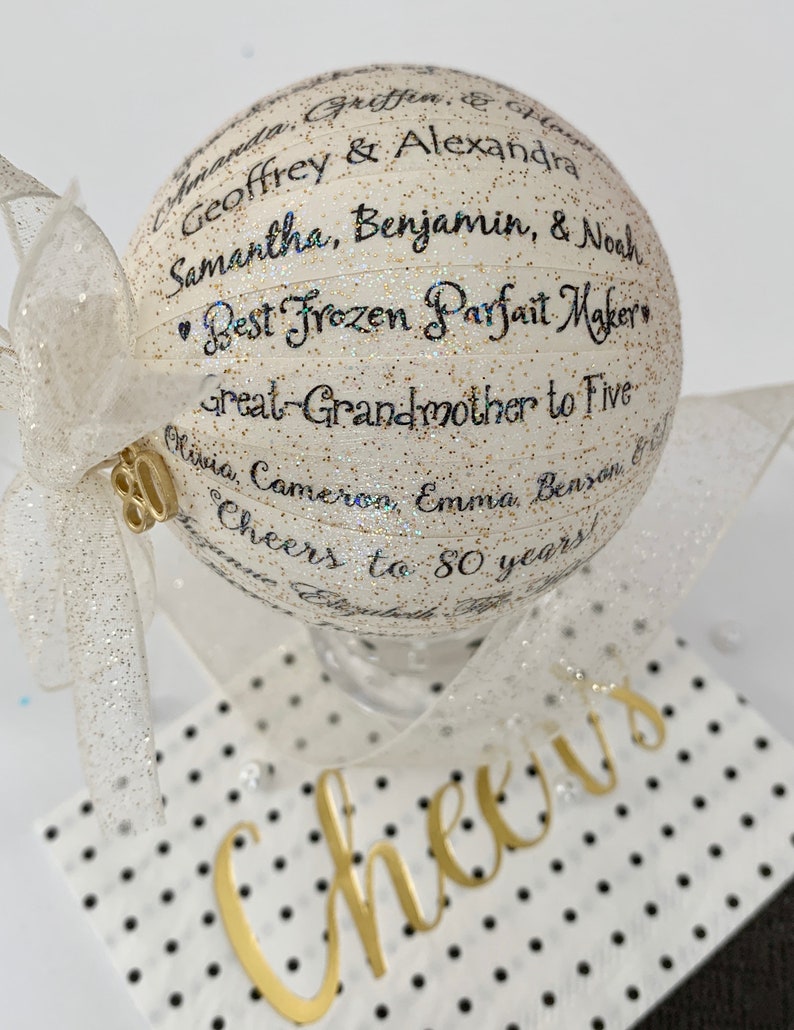 Amanda, Griffin, &
Geoffrey & Alexandra
Samantha, Benjamin, & Noah
Best Frozen Parfait Maker
Great-Grandmother to Five
Olivia, Cameron, Emma, Benson, &
80
Cheers to 80 years!
Suzanne Elizabeth
Cheers